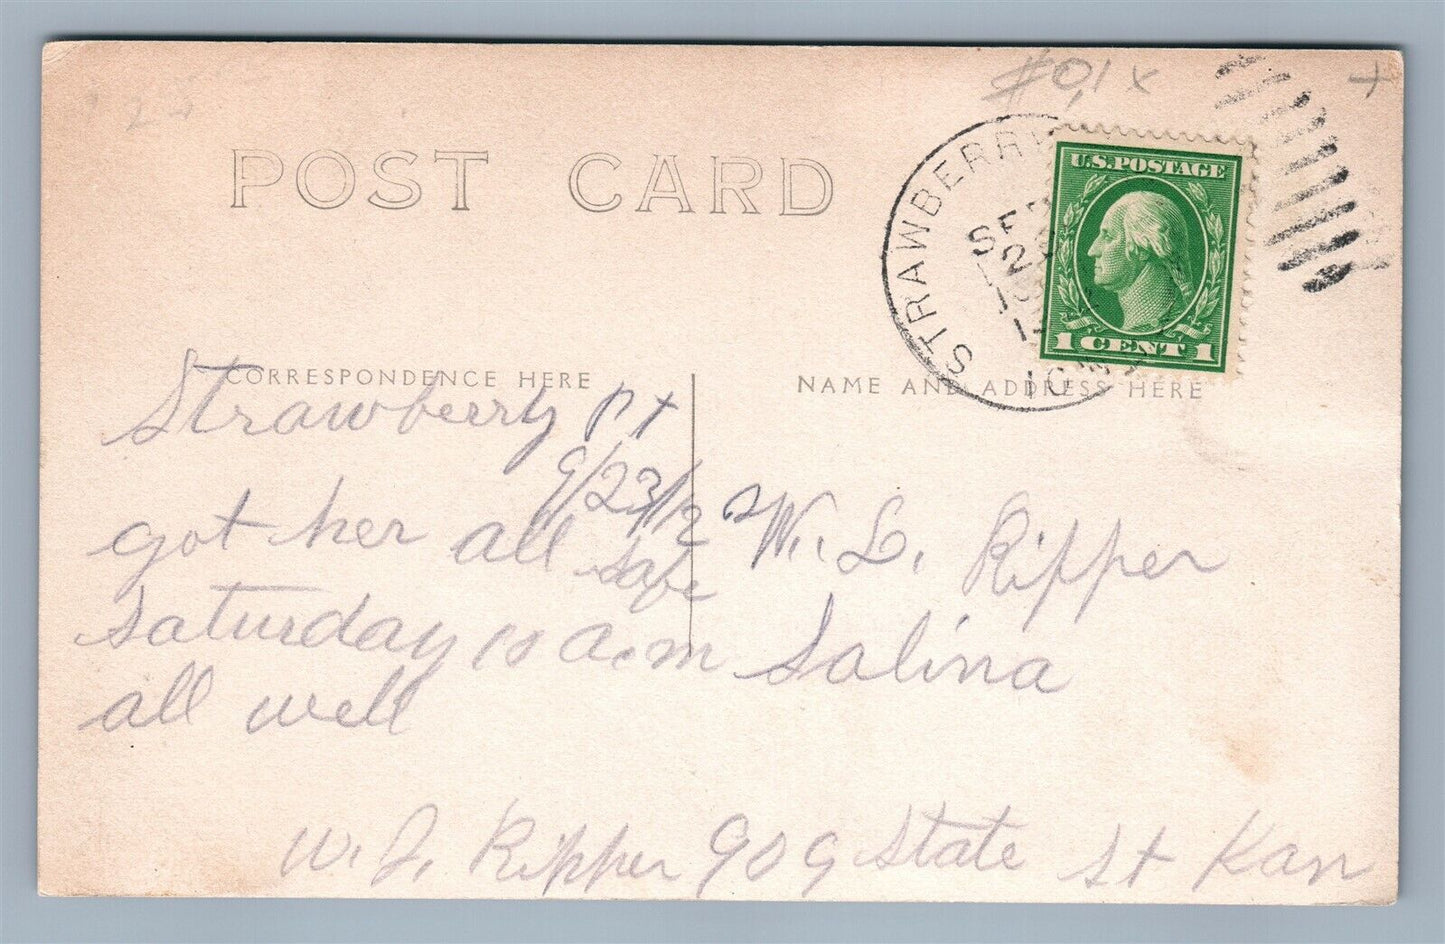 #0,1x +
POST CARD
STRAWBERRY
SEP
U.S.POSTAGE
1 CENT 1
IOWA
CORRESPONDENCE HERE
NAME AND ADDRESS HERE
Strawberry Pt
9/23/12
got her all safe
Saturday 10 a.m
all well
W. L. Ripper
Salina
W. J. Ripper 909 State St Kan